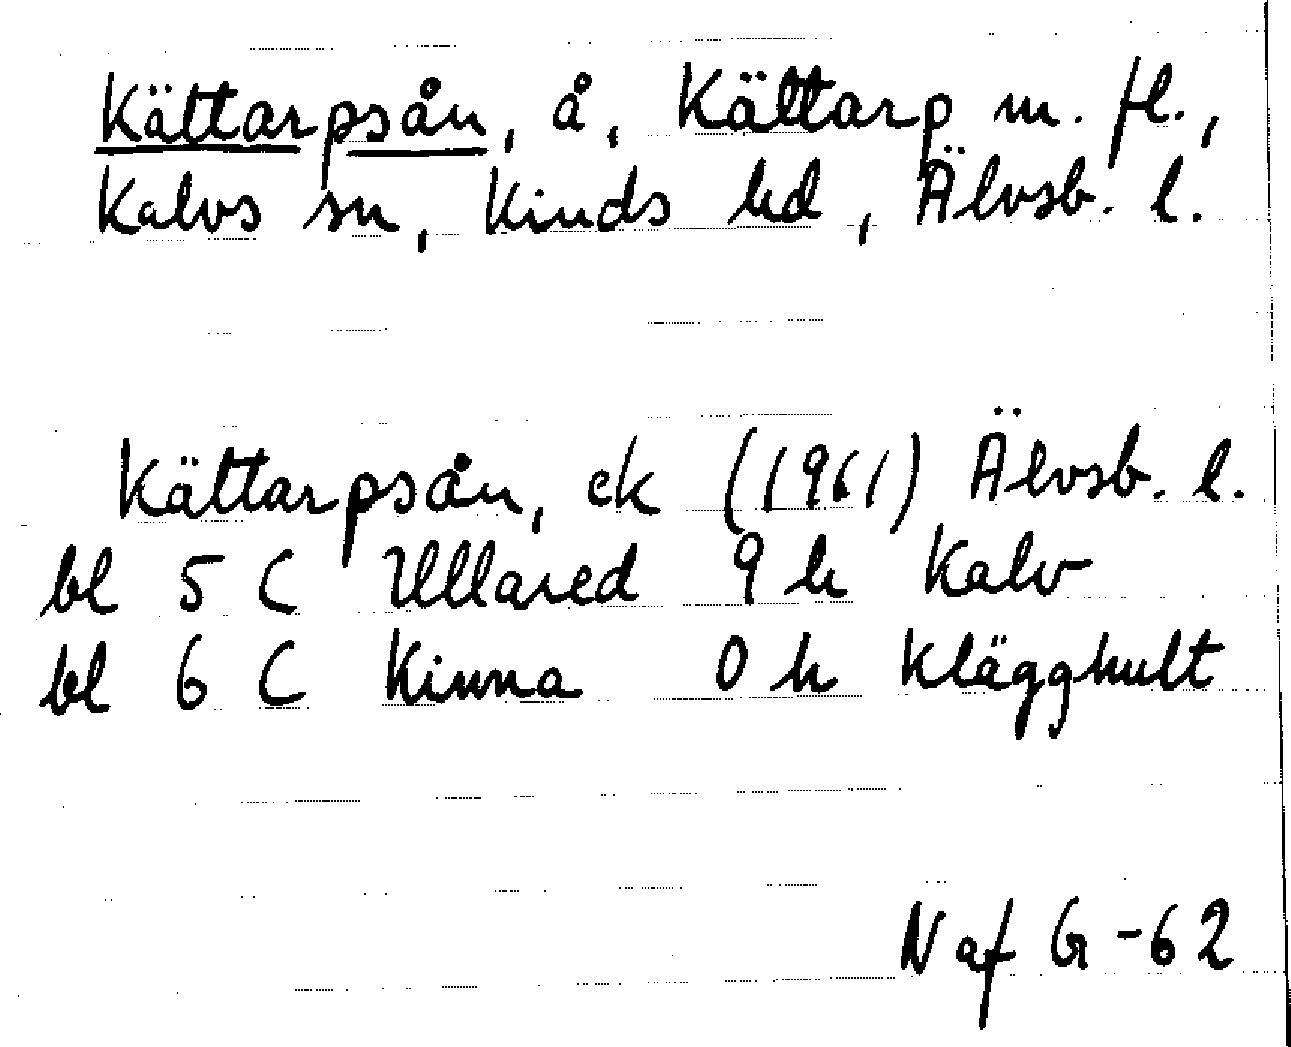 Kättarpsån, å, Kättarp m. fl.,
Kalvs sn, Kinds hd, Älvsb. l.
Kättarpsån, ek (1961) Älvsb. l.
bl 5 C Ullared 9 h Kalv
bl 6 C Kinna 0 h Klägghult
N af G -62